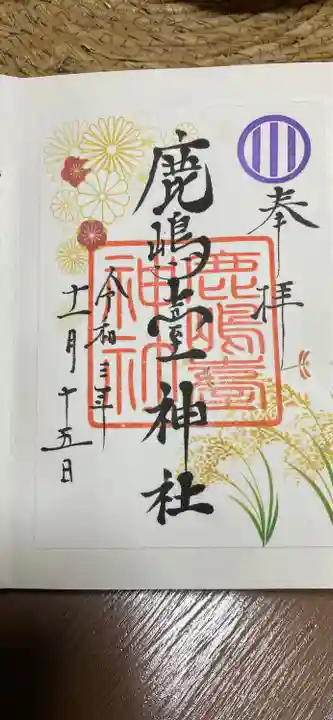 奉拝
鹿嶋臺神社
鹿嶋臺
神社
令和三年
十一月十五日